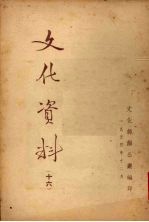 文化資料
(十六)
文化部辦公廳編印
一九五四年十二月